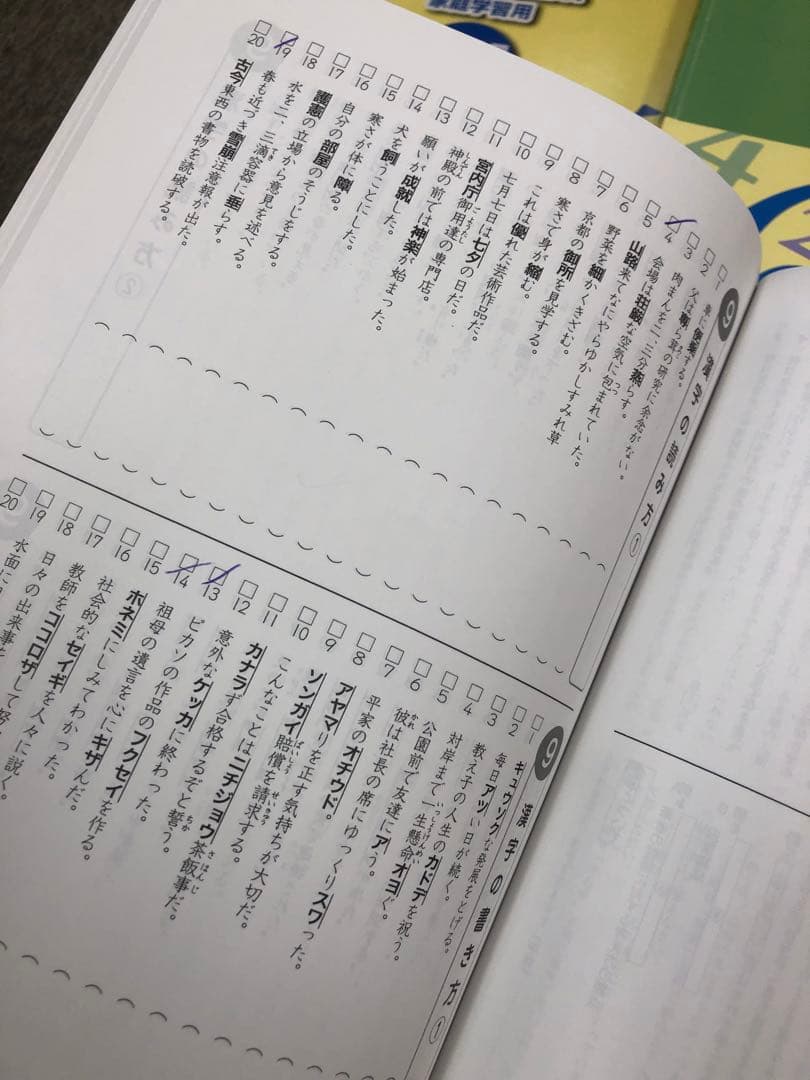 家庭学習用
4
9 漢字の読み方①
1 車に便乗する。
2 父は専ら茸の研究に余念がない。
3 肉まんを二、三分蒸らす。
4 会場は荘厳な空気に包まれていた。
5 山路来てなにやらゆかしすみれ草
6 野菜を細かくきざむ。
7 京都の御所を見学する。
8 寒さで身が縮む。
9 これは優れた芸術作品だ。
10 七月七日は七夕の日だ。
11 宮内庁御用達の専門店。
12 神殿の前では神楽が始まった。
13 願いが成就した。
14 犬を飼うことにした。
15 寒さが体に障る。
16 自分の部屋のそうじをする。
17 護憲の立場から意見を述べる。
18 水を二、三滴容器に垂らす。
19 春も近づき雪崩注意報が出た。
20 古今東西の書物を読破する。
9 漢字の書き方①
1 キュウソクな発展をとげる。
2 毎日アツい日が続く。
3 教え子の人生のカドデを祝う。
4 対岸まで一生懸命オヨぐ。
5 公園前で友達にアう。
6 彼は社長の席にゆっくりスワった。
7 平家のオチウド。
8 アヤマりを正す気持ちが大切だ。
9 ソンガイ賠償を請求する。
10 こんなことはニチジョウ茶飯事だ。
11 カナラず合格するぞと誓う。
12 意外なケッカに終わった。
13 ピカソの作品のフクセイを作る。
14 祖母の遺言を心にキザんだ。
15 ホネミにしみてわかった。
16 社会的なセイギを人々に説く。
17 教師をココロザして
18 日々の出来事を
19 水面に
20